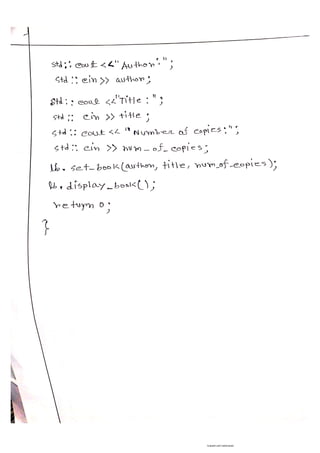 std :: cout << "Author: ";
std :: cin >> author;
std :: cout << "Title : ";
std :: cin >> title;
std :: cout << "Number of copies: ";
std :: cin >> num_of_copies;
lb. set_book(author, title, num_of_copies);
lb. display_book();
return 0;
}